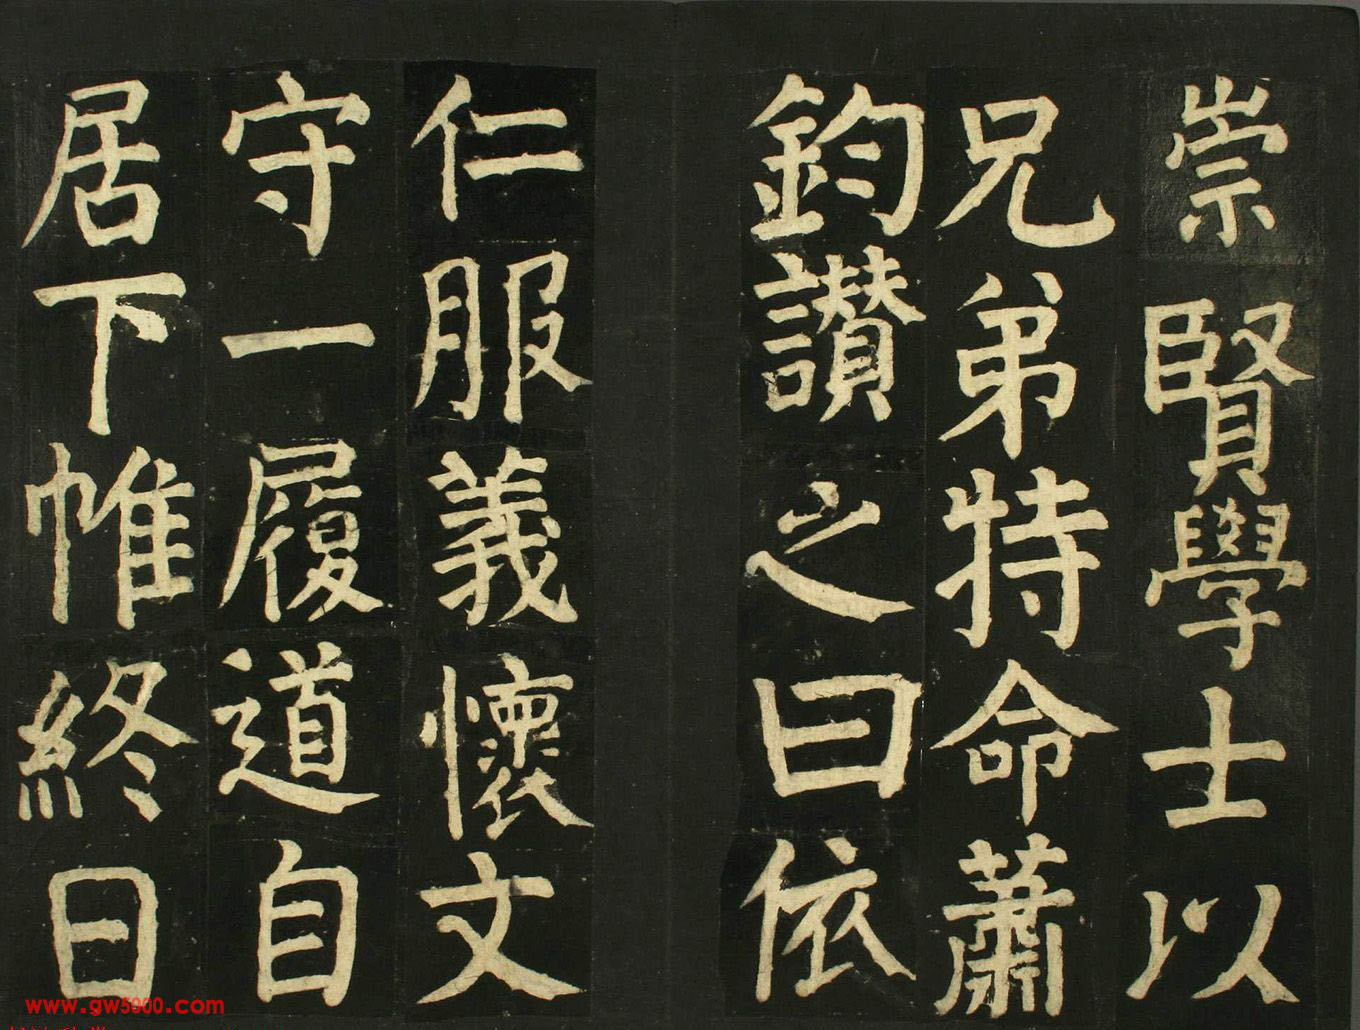 崇賢學士以
兄弟特命蕭
鈞讃之曰依
仁服義懷文
守一履道自
居下帷終日
www.gw5000.com